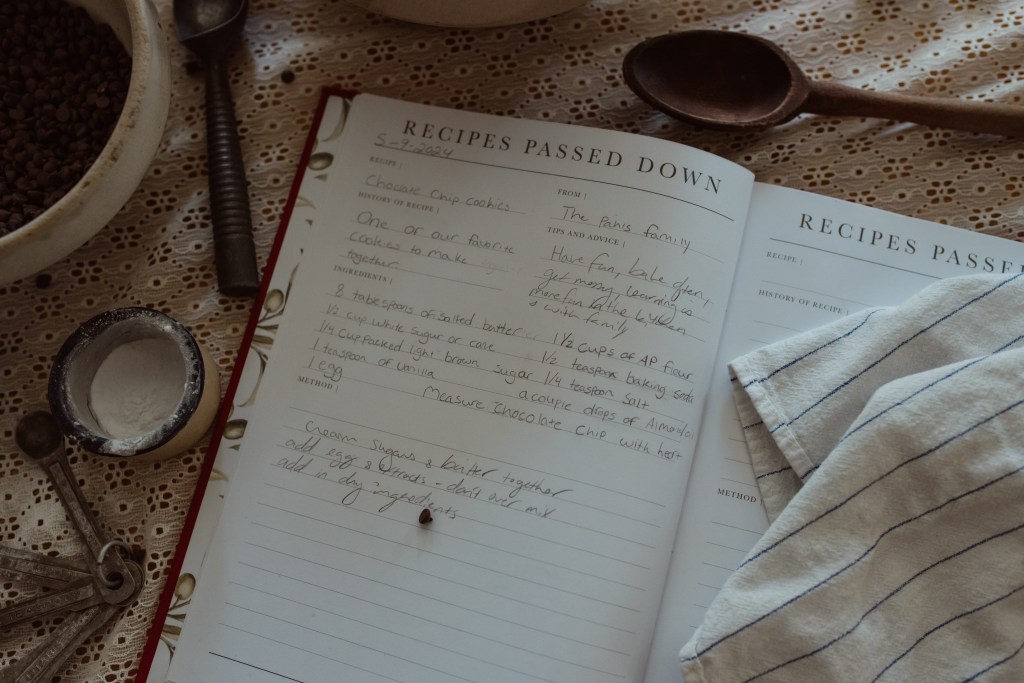 RECIPES PASSED DOWN
5-9-2024
RECIPE :
Choclate Chip cookies
HISTORY OF RECIPE :
One or our favorite
cookies to make
together.
FROM :
The Panis family
TIPS AND ADVICE :
Have fun, bake often,
get messy, learning is
more fun in the kitchen
& with family
INGREDIENTS :
8 tablespoons of salted butter
1/2 cup white sugar or cane
1/4 cup packed light brown sugar
1 teaspoon of vanilla
1 egg
1 1/2 cups of AP flour
1/2 teaspoon baking soda
1/4 teaspoon salt
a couple drops of Almond
Measure Chocolate Chip with heart
METHOD :
Cream sugars & butter together
add egg & extracts - don't over mix
add in dry ingredients
RECIPES PASSE
RECIPE :
HISTORY OF RECIPE :
METHOD